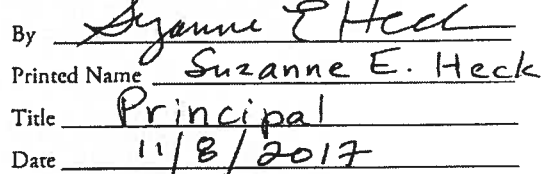 By Suzanne E Heck
Printed Name Suzanne E. Heck
Title Principal
Date 11/8/2017